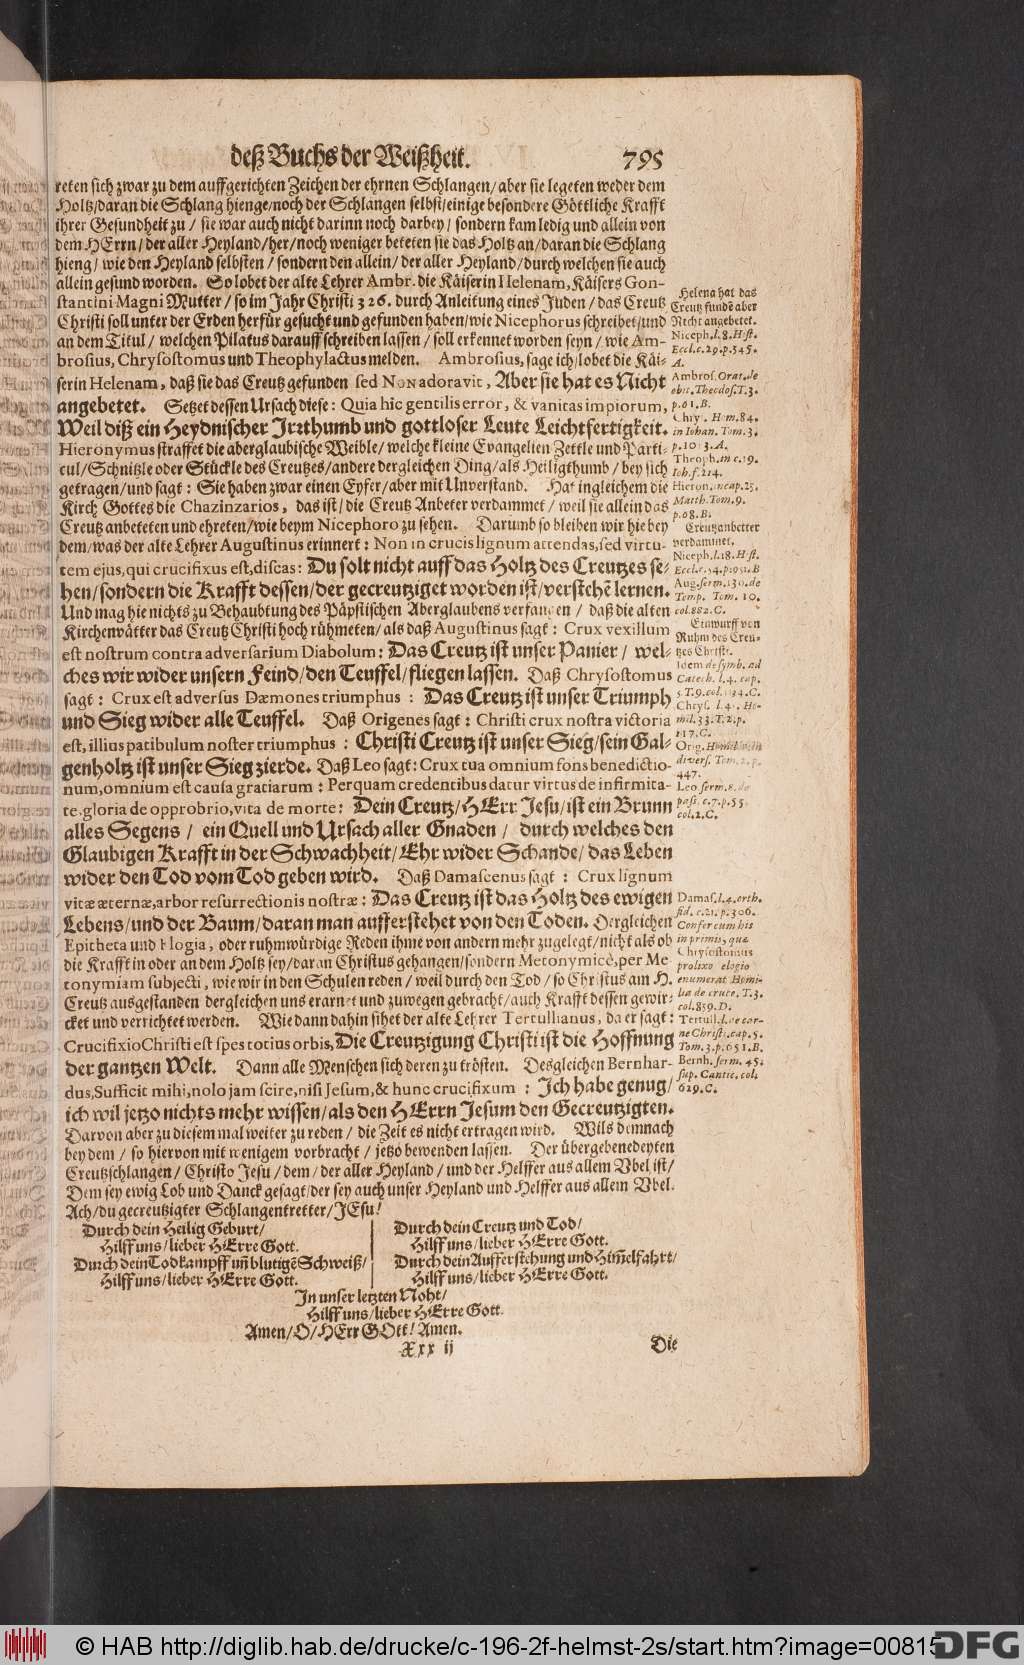 deß Buchs der Weißheit. 795
reten sich zwar zu dem auffgerichten Zeichen der ehrnen Schlangen/ aber sie legeten weder dem
Holtz/daran die Schlang hienge/noch der Schlangen selbst/einige besondere Göttliche Krafft
ihrer Gesundheit zu / sie war auch nicht darinn noch darbey/ sondern kam ledig und allein von
dem HErrn/ der aller Heyland/her/noch weniger beteten sie das Holtz an/ daran die Schlang
hieng/ wie den Heyland selbsten / sondern den allein/ der aller Heyland/durch welchen sie auch
allein gesund worden. So lobet der alte Lehrer Ambr. die Käiserin Helenam, Käisers Con-
stantini Magni Mutter/ so im Jahr Christi 326. durch Anleitung eines Juden / das Creutz
Christi soll unter der Erden herfür gesucht und gefunden haben/wie Nicephorus schreibet/und
an dem Titul / welchen Pilatus darauff schreiben lassen / soll erkennet worden seyn / wie Am-
brosius, Chrysostomus und Theophylactus melden. Ambrosius, sage ich/lobet die Käi-
serin Helenam, daß sie das Creutz gefunden sed NON adoravit, Aber sie hat es Nicht
angebetet. Setzet dessen Ursach diese: Quia hîc gentilis error, & vanitas impiorum,
Weil diß ein Heydnischer Irrthumb und gottloser Leute Leichtfertigkeit.
Hieronymus straffet die aberglaubische Weible/ welche kleine Evangelien Zettle und Parti-
cul/ Schnitzle oder Stückle des Creutzes/andere dergleichen Ding/als Heiligthumb / bey sich
getragen/und sagt: Sie haben zwar einen Eyfer/aber mit Unverstand. Hat ingleichem die
Kirch Gottes die Chazinzarios, das ist/ die Creutz Anbeter verdammet / weil sie allein das
Creutz anbeteten und ehreten/wie beym Nicephoro zu sehen. Darumb so bleiben wir hie bey
dem/was der alte Lehrer Augustinus erinnert: Non in crucis lignum attendas, sed virtu-
tem ejus, qui crucifixus est, discas: Du solt nicht auff das Holtz des Creutzes se-
hen/sondern die Krafft dessen/der gecreutziget worden ist/verstehē lernen.
Und mag hie nichts zu Behaubtung des Päpstischen Aberglaubens verfangen / daß die alten
Kirchenvätter das Creutz Christi hoch rühmeten/ als daß Augustinus sagt: Crux vexillum
est nostrum contra adversarium Diabolum: Das Creutz ist unser Panier / wel-
ches wir wider unsern Feind/ den Teuffel/ fliegen lassen. Daß Chrysostomus
sagt: Crux est adversus Dæmones triumphus : Das Creutz ist unser Triumph
und Sieg wider alle Teuffel. Daß Origenes sagt: Christi crux nostra victoria
est, illius patibulum noster triumphus : Christi Creutz ist unser Sieg/sein Gal-
genholtz ist unser Siegzierde. Daß Leo sagt: Crux tua omnium fons benedictio-
num, omnium est causa gratiarum : Per quam credentibus datur virtus de infirmita-
te, gloria de opprobrio, vita de morte: Dein Creutz/ HErr Jesu/ist ein Brunn
alles Segens / ein Quell und Ursach aller Gnaden / durch welches den
Glaubigen Krafft in der Schwachheit/ Ehr wider Schande/ das Leben
wider den Tod vom Tod geben wird. Daß Damascenus sagt : Crux lignum
vitæ æternæ, arbor resurrectionis nostræ: Das Creutz ist das Holtz des ewigen
Lebens/und der Baum/ daran man aufferstehet von den Toden. Dergleichen
Epitheta und Elogia, oder ruhmwürdige Reden ihme von andern mehr zugelegt/ nicht als ob
die Krafft in oder an dem Holtz sey/ daran Christus gehangen/sondern Metonymicè, per Me
tonymiam subjecti, wie wir in den Schulen reden / weil durch den Tod / so Christus am H.
Creutz ausgestanden dergleichen uns erarnet und zuwegen gebracht/ auch Krafft dessen gewir-
cket und verrichtet werden. Wie dann dahin sihet der alte Lehrer Tertullianus, da er sagt:
Crucifixio Christi est spes totius orbis, Die Creutzigung Christi ist die Hoffnung
der gantzen Welt. Dann alle Menschen sich deren zu trösten. Desgleichen Bernhar-
dus, Sufficit mihi, nolo jam scire, nisi Jesum, & hunc crucifixum : Ich habe genug/
ich wil jetzo nichts mehr wissen/als den HErrn Jesum den Gecreutzigten.
Darvon aber zu diesem mal weiter zu reden / die Zeit es nicht ertragen wird. Wils demnach
bey dem / so hiervon mit wenigem vorbracht / jetzo bewenden lassen. Der übergebenedeyten
Creutzschlangen/ Christo Jesu / dem / der aller Heyland / und der Helffer aus allem Vbel ist/
Dem sey ewig Lob und Danck gesagt/der sey auch unser Heyland und Helffer aus allem Vbel.
Ach/du gecreutzigter Schlangentretter/JEsu!
Durch dein Heilig Geburt/
Hilff uns/ lieber HErre Gott.
Durch dein Todkampff uñ blutigē Schweiß/
Hilff uns/lieber HErre Gott.
Durch dein Creutz und Tod/
Hilff uns/ lieber HErre Gott.
Durch dein Aufferstehung und Him̃elfahrt/
Hilff uns/ lieber HErre Gott.
In unser letzten Noht/
Hilff uns/lieber HErre Gott.
Amen/ O/ HErr GOtt! Amen.
Xxx ij
Die
Helena hat das
Creutz funde aber
Nicht angebetet.
Niceph. l. 8. Hist.
Eccl. c. 29. p. 545.
A.
Ambros. Orat. de
obit. Theodos. T. 3.
p. 61. B.
Chrys. Hom. 84.
in Iohan. Tom. 3.
Theoph. in c. 19.
Ioh. f. 214.
Hieron. in cap. 23.
Matth. Tom. 9.
p. 68. B.
Creutzanbetter
verdammet.
Niceph. l. 18. Hist.
Aug. serm. 130. de
Temp. Tom. 10.
col. 882. C.
Einwurff von
Ruhm des Creu-
tzes Christi.
Idem de symb. ad
Catech. l. 4. cap.
Orig.
447.
Leo serm. 8. de
pass. c. 7. p. 55.
col. 2. C.
Damas. l. 4. orth.
fid. c. 21. p. 306.
Confer cum his
in primis, quæ
Chrysostomus
prolixo elogio
enumerat Homi-
lia de cruce. T. 3.
col. 839. D.
Tertull. l. de car-
ne Christi, cap. 5.
Tom. 3. p. 651. B.
Bernh. serm. 45.
sup. Cantic. col.
629. C.
© HAB http://diglib.hab.de/drucke/c-196-2f-helmst-2s/start.htm?image=00815
DFG